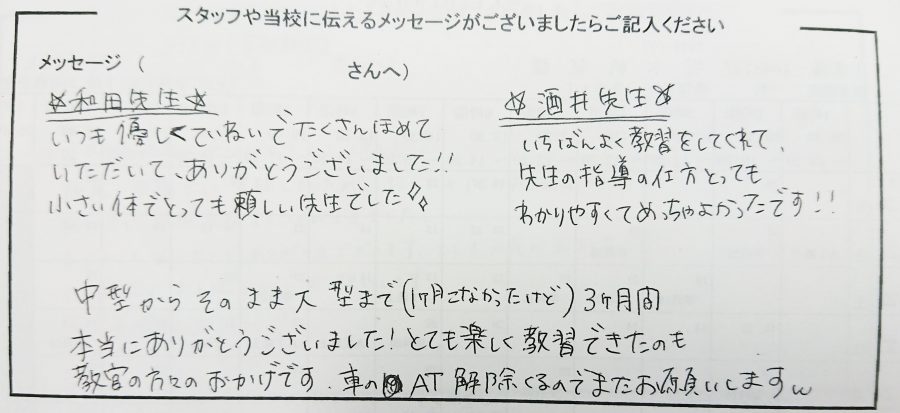 スタッフや当校に伝えるメッセージがございましたらご記入ください
メッセージ（　　　　　　　　　さんへ）
☆和田先生☆
いつも優しくていねいでたくさんほめて
いただいて、ありがとうございました!!
小さい体でとっても頼しい先生でした
☆酒井先生☆
いちばんよく教習をしてくれて、
先生の指導の仕方とっても
わかりやすくてめっちゃよかったです!!
中型からそのまま大型まで(1ヶ月こなかったけど)3ヶ月間
本当にありがとうございました!とても楽しく教習できたのも
教官の方々のおかげです.車のAT解除くるのでまたお願いしますw